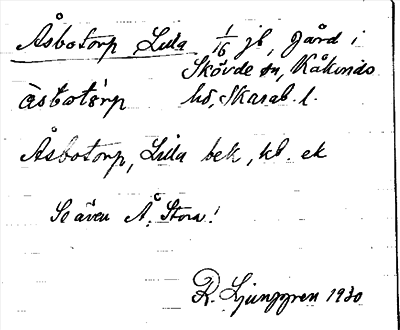 Åsbotorp Lilla 1/16 jb, gård i
Skövde sn, Kåkinds
àsbotè̀rp hd, Skarab. l.
Åsbotorp, Lilla bek, kl. ek
Se även Å. Stora!
R. Ljunggren 1930